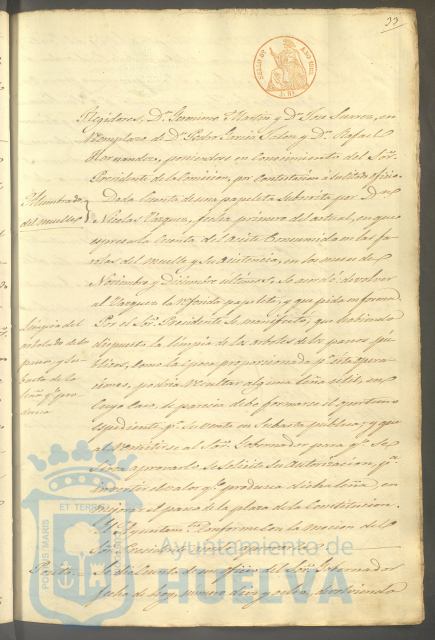 33
SELLO 4º AÑO 1861
Regidores, Dn. Geronimo Martin y Dn. José Suarez, en
reemplazo de Dn. Pedro Garcia y Dn. Rafael
Hernandez, poniendose en conocimiento del Sor.
Presidente de la Comision, por contestacion a su citado oficio.
Alumbrado
del muelle
Dada cuenta de una papeleta subscrita por Dn.
Nicolas Vazquez, fecha primero del actual, en que
expresa la cuenta del aceite consumido en las fa-
rolas del muelle y su asistencia, en los meses de
Noviembre y Diciembre ultimos, se acordó devolver
al Vazquez la referida papeleta, y que pida en forma.
Limpia del
arbolado de los
paseos, y su-
basta de la
leña qe. pro-
duzca
Por el Sor. Presidente se manifestó, que habiendo
dispuesto la limpia de los arboles de los paseos pú-
blicos, como la epoca proporcionada pa. esta opera-
ciones, podria resultar alguna leña util, en
cuyo caso, le parecia debe formarse el oportuno
expediente pa. su venta en subasta publica; y que
al remitirse al Sor. Gobernador para qe. se
sirva aprobarlo se solicite su autorizacion, pa.
invertir el valor qe. produzca dicha leña, en
mejorar el paseo de la plaza de la Constitucion.
Y el Ayuntamto. conforme con la mocion del
Sor.
Se dió cuenta de un oficio del Sor. Gobernador
fecha de hoy, numero diez y ocho, devolviendo
PORTUS MARIS
ET TERRÆ
Ayuntamiento de
HUELVA